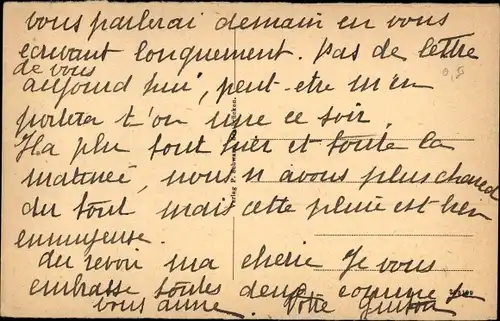 vous parlerai demain en vous
écrivant longuement. pas de lettre
de vous
aujourd hui, peut-etre m'en
portera t'on une ce soir.
Il a plu tout hier et toute la
matineé, nous n avons plus chaud
du tout mais cette pluie est bien
ennuyeuse.
au revoir ma cherie Je vous
embrasse toutes deux comme je
vous aime. Votre
Verlag